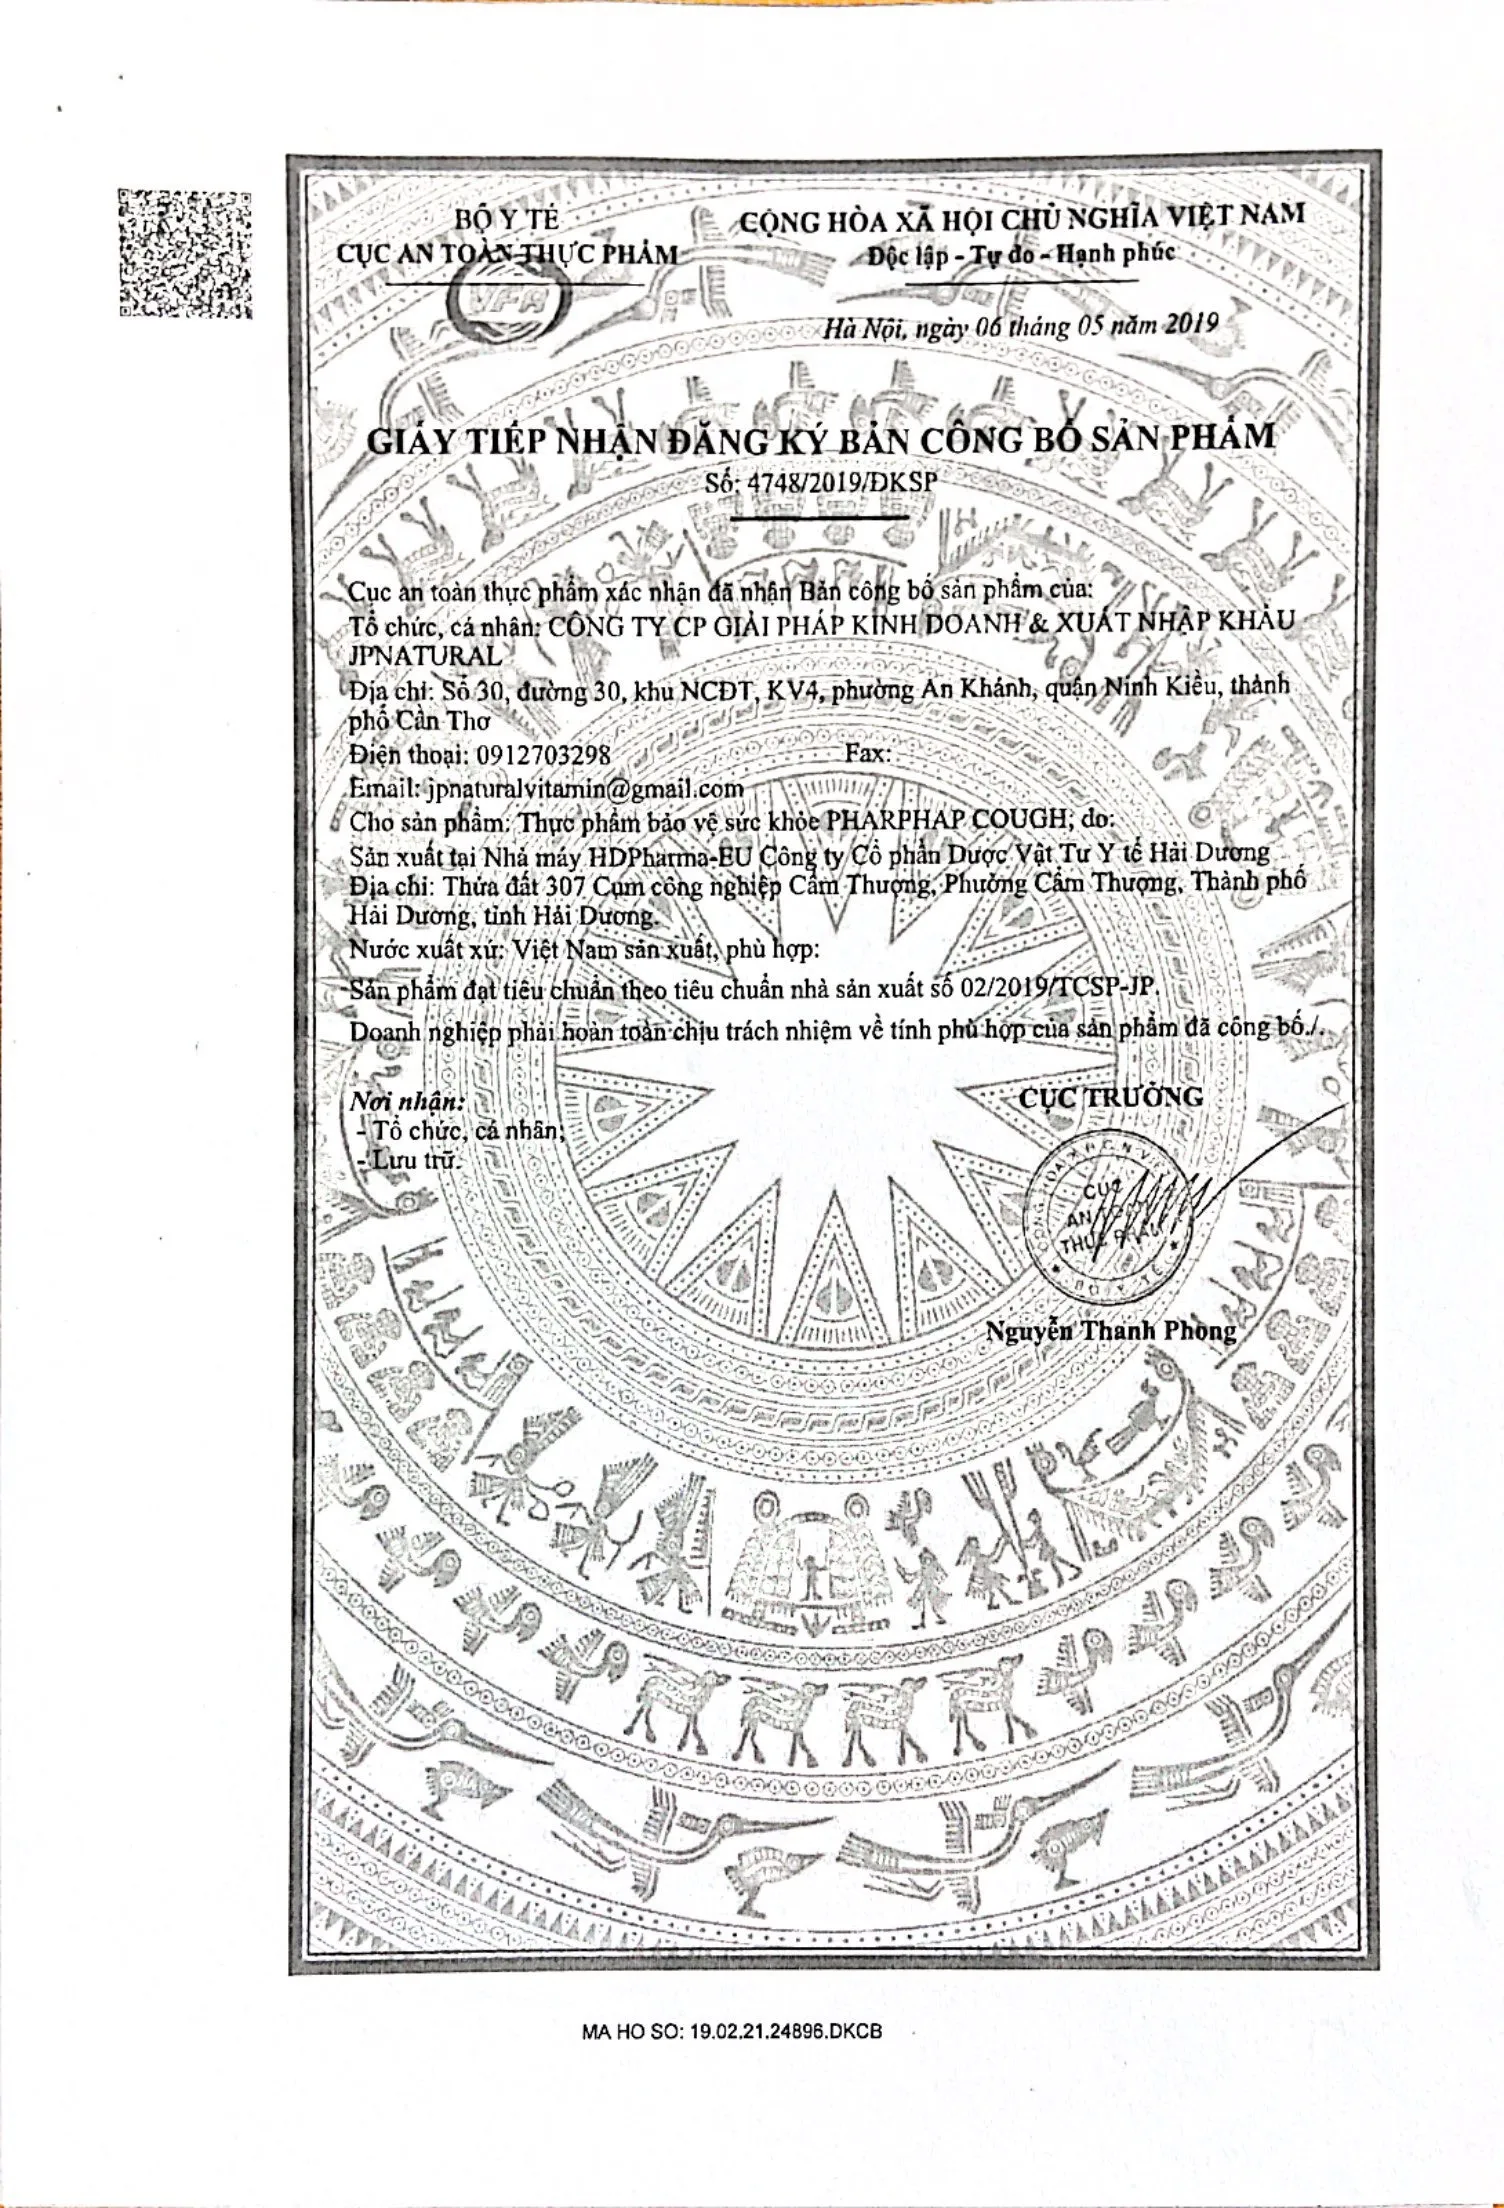 BỘ Y TẾ
CỤC AN TOÀN THỰC PHẨM
VFA
CỘNG HÒA XÃ HỘI CHỦ NGHĨA VIỆT NAM
Độc lập - Tự do - Hạnh phúc
Hà Nội, ngày 06 tháng 05 năm 2019
GIẤY TIẾP NHẬN ĐĂNG KÝ BẢN CÔNG BỐ SẢN PHẨM
Số: 4748/2019/ĐKSP
Cục an toàn thực phẩm xác nhận đã nhận Bản công bố sản phẩm của:
Tổ chức, cá nhân: CÔNG TY CP GIẢI PHÁP KINH DOANH & XUẤT NHẬP KHẨU
JPNATURAL
Địa chỉ: Số 30, đường 30, khu NCĐT, KV4, phường An Khánh, quận Ninh Kiều, thành
phố Cần Thơ
Điện thoại: 0912703298 Fax:
Email: jpnaturalvitamin@gmail.com
Cho sản phẩm: Thực phẩm bảo vệ sức khỏe PHARPHAP COUGH; do:
Sản xuất tại Nhà máy HDPharma-EU Công ty Cổ phần Dược Vật Tư Y tế Hải Dương
Địa chỉ: Thửa đất 307 Cụm công nghiệp Cẩm Thượng, Phường Cẩm Thượng, Thành phố
Hải Dương, tỉnh Hải Dương.
Nước xuất xứ: Việt Nam sản xuất, phù hợp:
Sản phẩm đạt tiêu chuẩn theo tiêu chuẩn nhà sản xuất số 02/2019/TCSP-JP.
Doanh nghiệp phải hoàn toàn chịu trách nhiệm về tính phù hợp của sản phẩm đã công bố./.
Nơi nhận:
- Tổ chức, cá nhân;
- Lưu trữ.
CỤC TRƯỞNG
CỤC
AN TOÀN
THỰC PHẨM
Nguyễn Thanh Phong
MA HO SO: 19.02.21.24896.DKCB